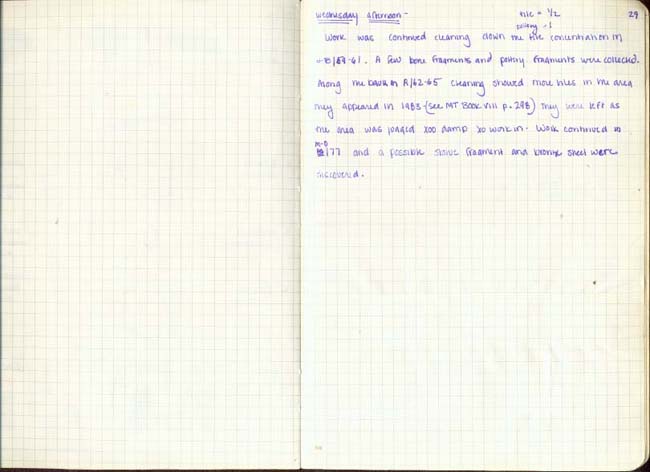 Wednesday afternoon-
tile = 1/2
pottery - 1
29
Work was continued cleaning down the tile concentration in
/59-61. A few bone fragments and pottery fragments were collected.
Along the baulk in R/62-65 cleaning showed more tiles in the area
they appeared in 1983-(see MT Book VIII p. 298) They were left as
the area was judged too damp to work in. Work continued in
/77 and a possible stone fragment and bronze sheet were
discovered.